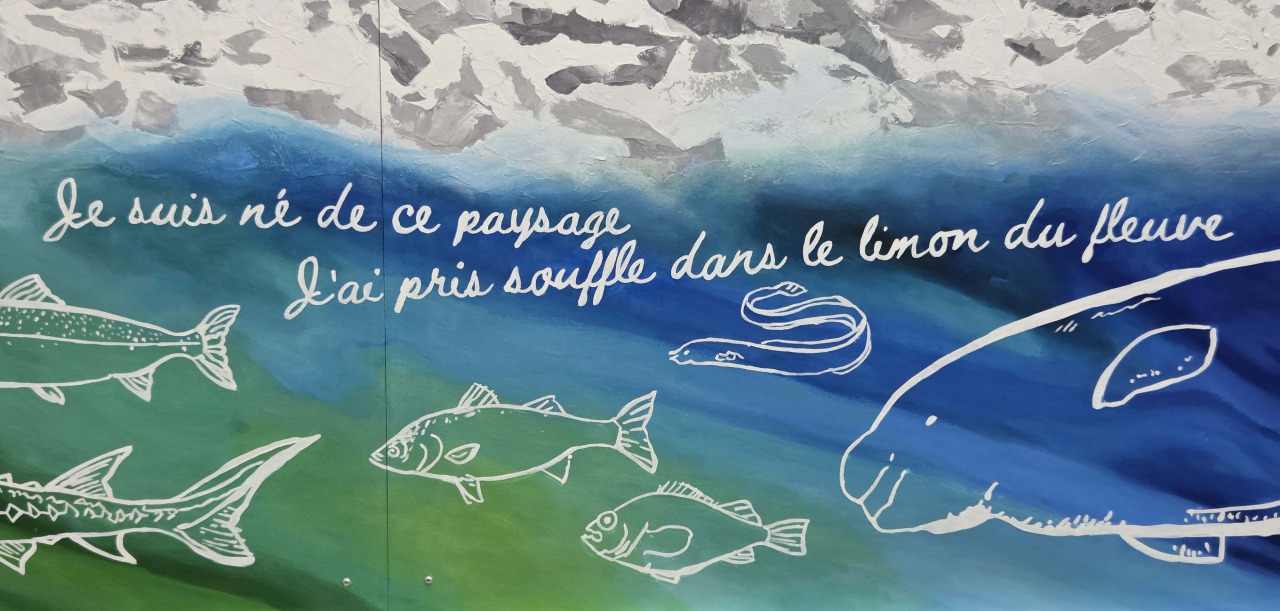 Je suis né de ce paysage
J'ai pris souffle dans le limon du fleuve